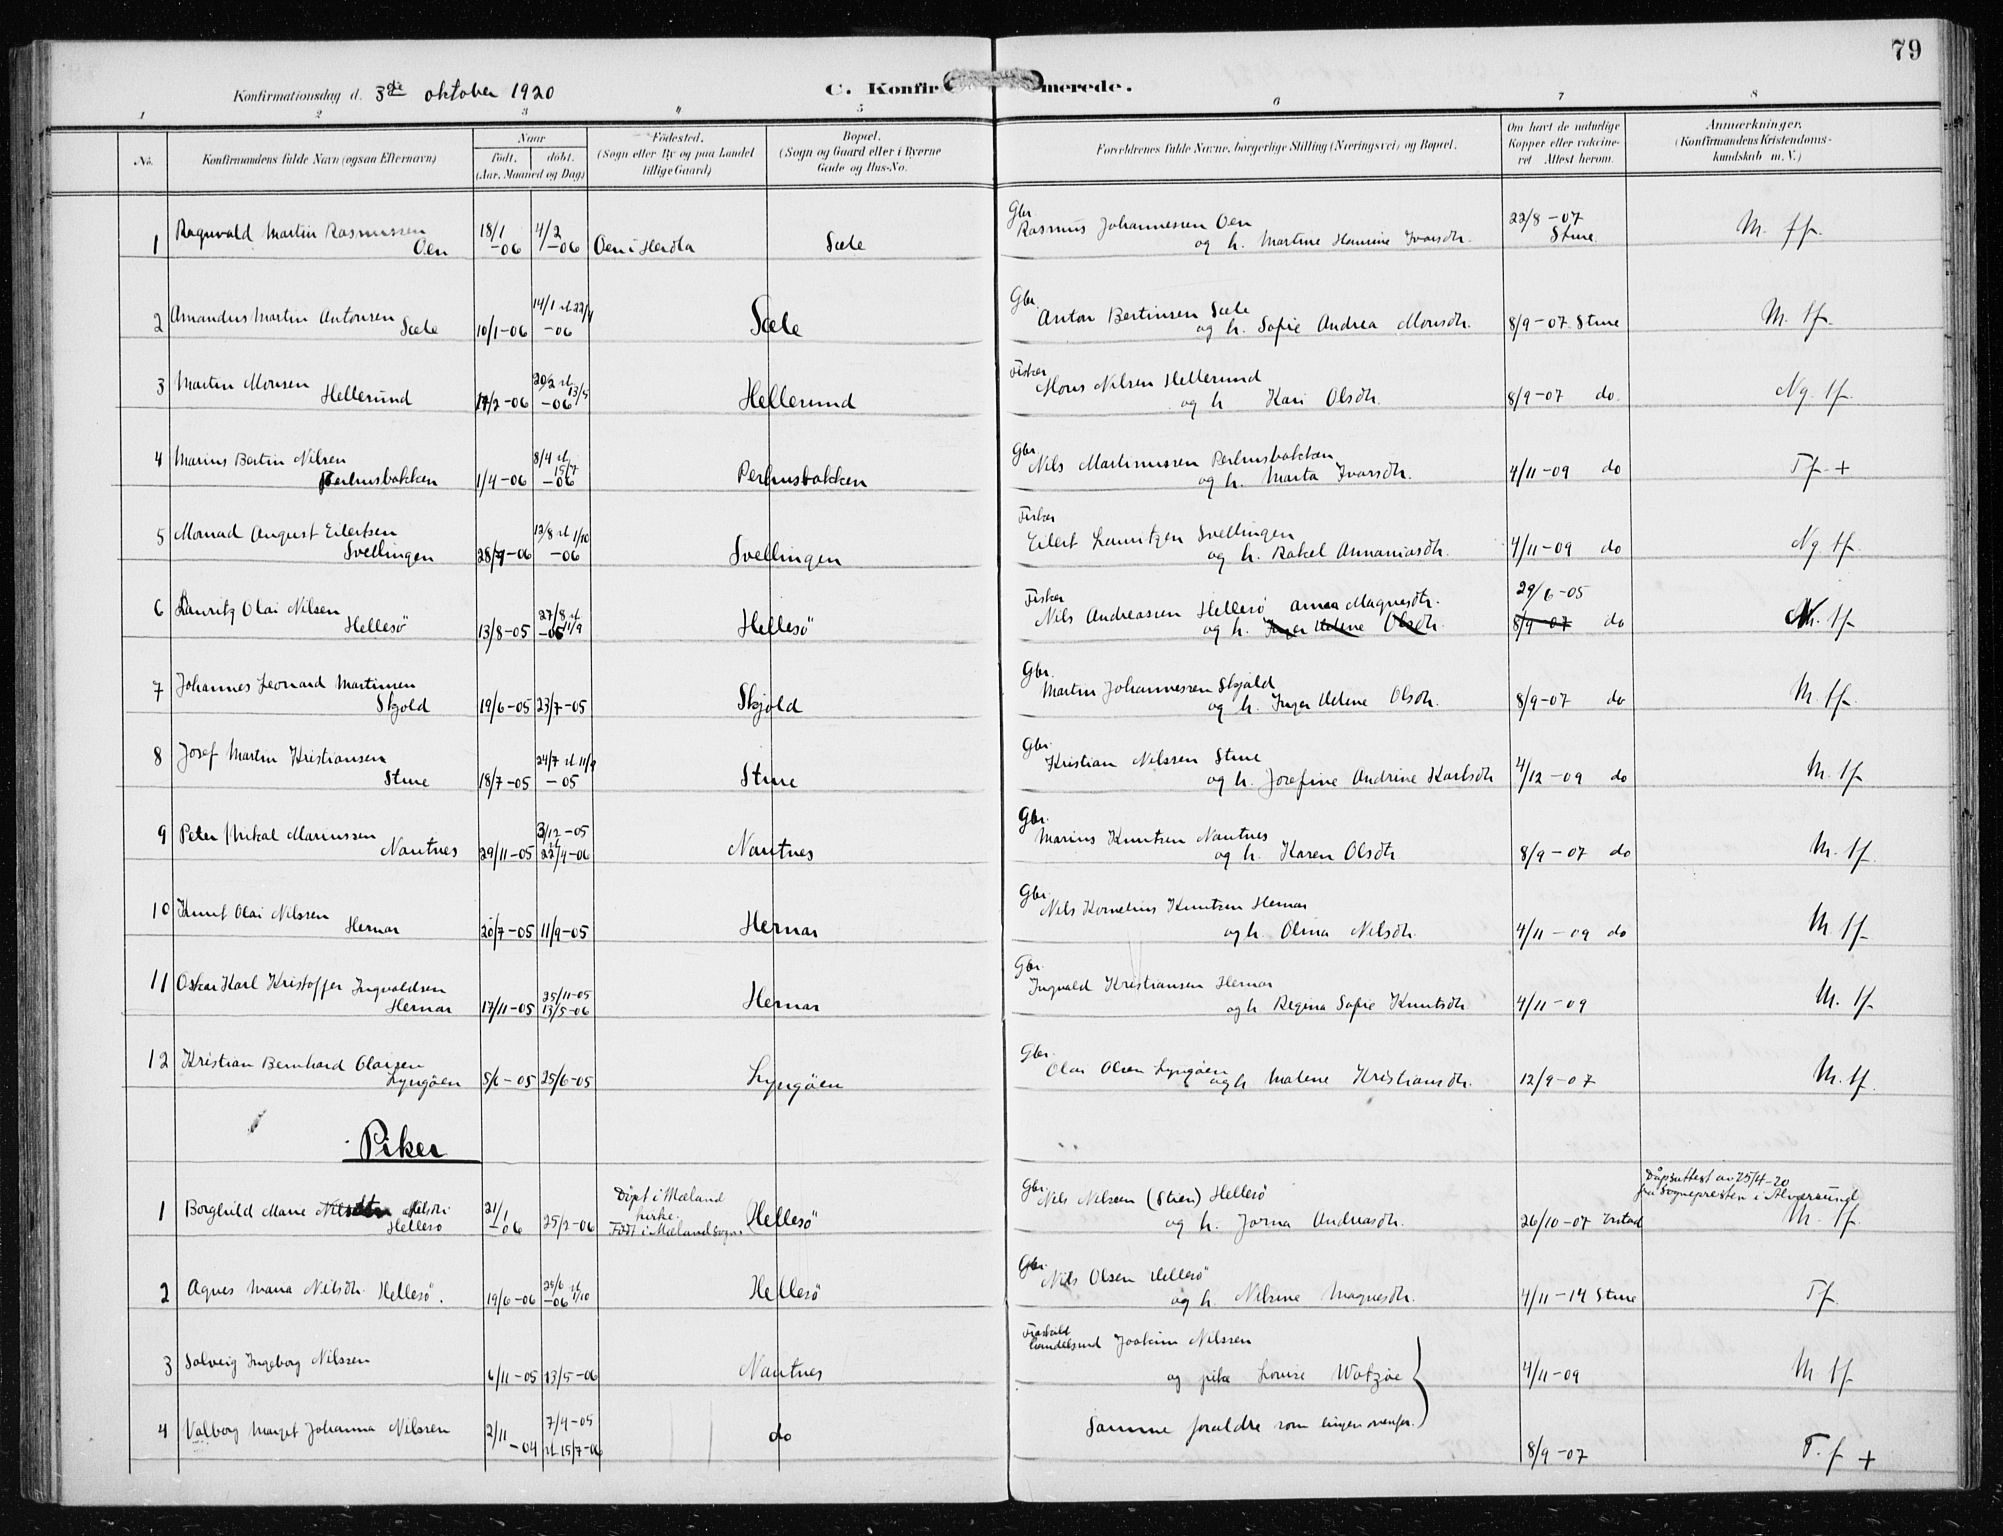 79
Konfirmationsdag d. 3de oktober 1920
C. Konfirmerede.
1 2 3 4 5 6 7 8
No. Konfirmandens fulde Navn (ogsaa Efternavn) Naar født. døbt. (Aar. Maaned og Dag)
Fødested. (Sogn eller By og paa Landet tillige Gaard)
Bopæl. (Sogn og Gaard eller i Byerne Gade og Hus-No.
Forældrenes fulde Navne, borgerlige Stilling (Næringsvei) og Bopæl.
Om havt de naturlige Kopper eller vaccineret Attest herom.
Anmærkninger. (Konfirmandens Kristendomskundskab m. V.)
1 Ragnvald Martin Rasmussen Oen 18/1 -06 4/2 -06 Oen i Herdla Sæle Gbr. Rasmus Johannessen Oen og h. Martine Hanine Ivarsdtr. 22/8 -07 Sture. M. tf.
2 Amandus Martin Antonsen Sæle 10/1-06 14/1 st 22/4 -06 Sæle Gbr. Anton Bertinsen Sæle og h. Sofie Andrea Monsdtr. 8/9-07 Sture M. tf.
3 Martin Monsen Hellesund 17/2-06 20/2 st 13/5 -06 Hellesund Fisker Mons Nilsen Hellesund og h Kari Olsdtr. 8/9-07 do. Ng. tf.
4 Marius Bertin Nilsen Perhusbakken 1/4-06 8/4 st 15/7 -06 Perhusbakken Gbr Nils Martinussen Perhusbakken og h. Marta Ivarsdtr. 4/11-09 do Tf. +
5 August Eilertsen Svellingen 28/7-06 12/8 st 1/10 -06 Svellingen Fisker Eilert Lauritzen Svellingen og h. Rakel Annaniasdtr. 4/11-09 do Ng tf.
6 Lauritz Olai Nilsen Hellesö 13/8-05 27/8 st 11/9 -05 Hellesö Fisker Nils Andreassen Hellesö Anna Magnesdtr. og h. Inger Helene Olsdtr. 29/6-05 8/9-07 do M. tf
7 Johannes Leonard Martinsen Skjold 19/6-05 23/7-05 Skjold Gbr. Martin Johannessen Skjold og h. Inger Helene Olsdtr. 8/9-07 do M. tf.
8 Josef Martin Kristiansen Sture 18/7-05 24/7 st 11/9 -05 Sture Gbr. Kristian Nilssen Sture og h. Josefine Andrine Karlsdtr 4/12-09 do M. tf
9 Peter Mikal Mariussen Nautnes 29/11-05 3/12-05 st 22/4-06 Nautnes Gbr. Marius Knutsen Nautnes og h. Karen Olsdtr 8/9-07 do M. tf.
10 Knut Olai Nilssen Hernar 20/7-05 11/9-05 Hernar Gbr. Nils Kornelius Knutsen Hernar og h. Olina Nilsdtr. 4/11-09 do M tf
11 Oskar Karl Kristoffer Ingvaldsen Hernar 17/11-05 25/11-05 13/5-06 Hernar Gbr. Ingvald Kristiansen Hernar og h Regina Sofie Knutsdtr. 4/11-09 M. tf.
12 Kristian Bernhard Olaisen Lyngöen 5/6-05 25/6-05 Lyngöen Gbr. Olai Olsen Lyngöen og h Malene Kristiansdtr. 12/9-07 M. tf.
Piker
1 Borghild Marie Nilsdtr. Hellesö 21/1 -06 25/2-06 Döpt i Mæland kirke. Född i Mæland sogn Hellesö Gbr. Nils Nilsen (Stien) Hellesö og h. Andreasdtr. 26/10-07 Dåpsattest av 25/4-20 fra Sognepresten i Alversund M. tf.
2 Agnes Maria Nilsdtr. Hellesö. 19/6-06 25/6 st 1/10 -06 Hellesö Gbr. Nils Olsen Hellesö og h. Nilsine Magnesdtr. 4/11-14 Sture Tf.
3 Solveig Ingeborg Nilssen 6/11-05 13/5-06 Nautnes Fraskilt handelsmd Joakim Nilssen og pike Lovise Watzøe 4/11-09 M tf
4 Valborg Marget Johanna Nilssen 2/11 -04 7/4-05 st 15/7-06 do Samme foraldre som 8/9-07 T. f +